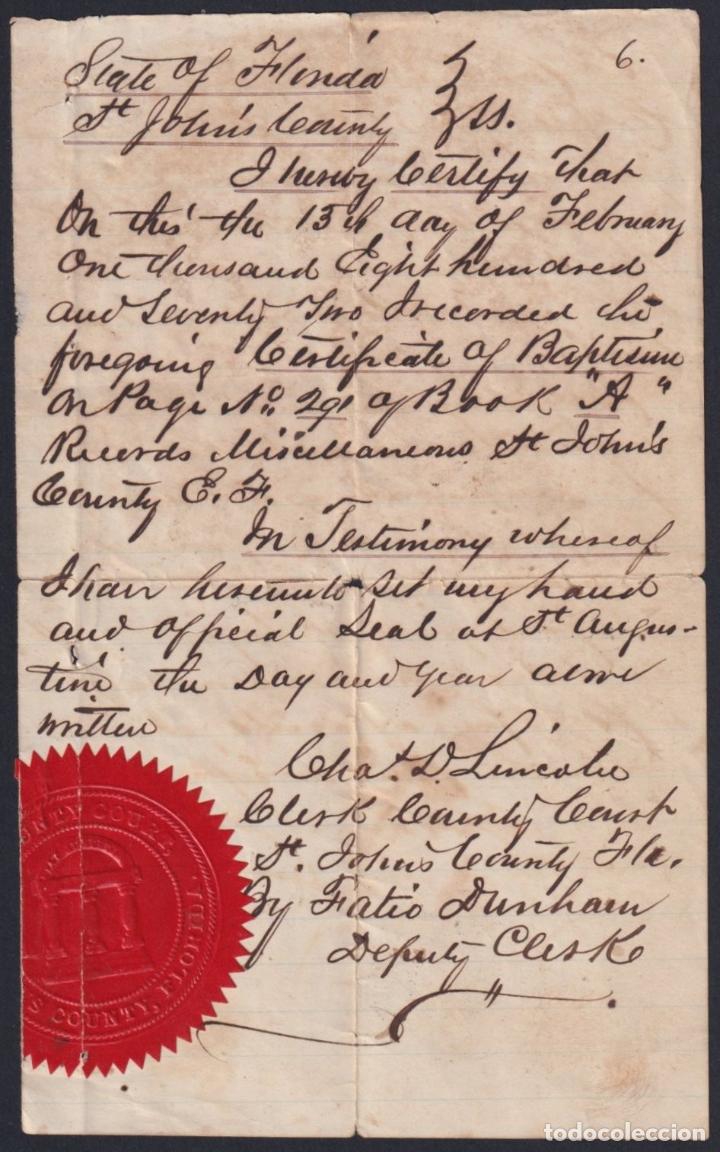 6.
State of Florida
St. John's County } ss.
I hereby Certify that
On this the 15th day of February
One thousand Eight hundred
and Seventy Two I recorded the
foregoing Certificate of Baptism
on Page No. 291 of Book "A"
Records Miscellaneous St John's
County E. F.
In Testimony whereof
I have hereunto set my hand
and official Seal at St Augus-
tine the Day and year above
written
Chas. D. Lincoln
Clerk County Court
St. John's County Fla.
By Fatio Dunham
Deputy Clerk
COUNTY COURT
S COUNTY, FLORIDA
todocoleccion